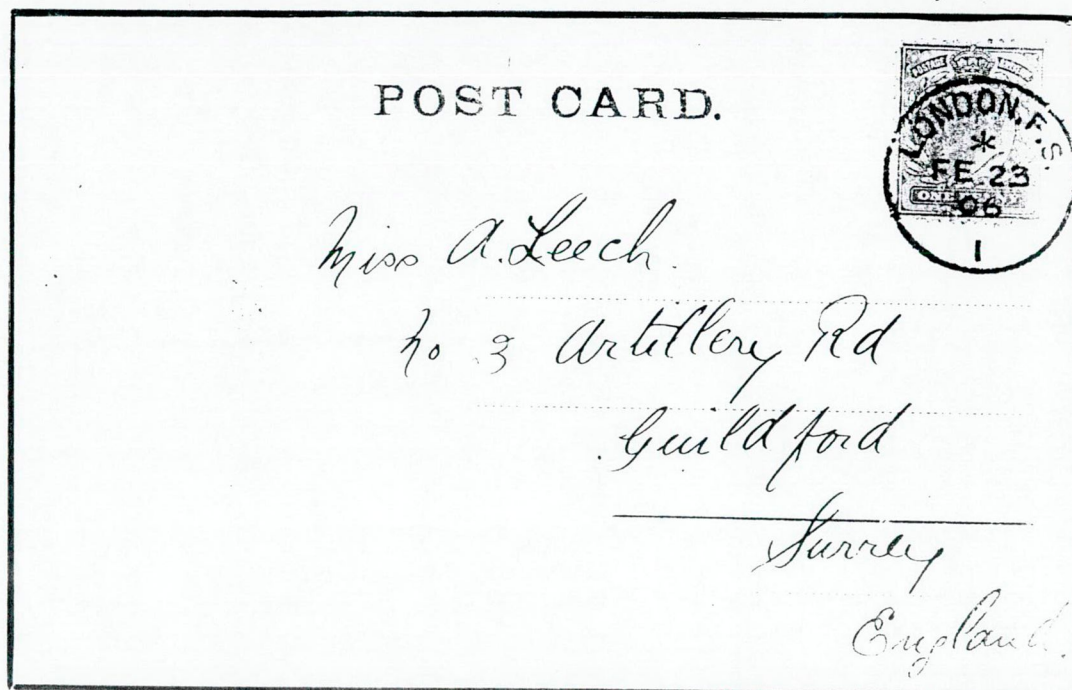 POST CARD.
LONDON. F.S.
FE 23
06
1
Miss A. Leech
No 3 Artillery Rd
Guildford
Surrey
England.